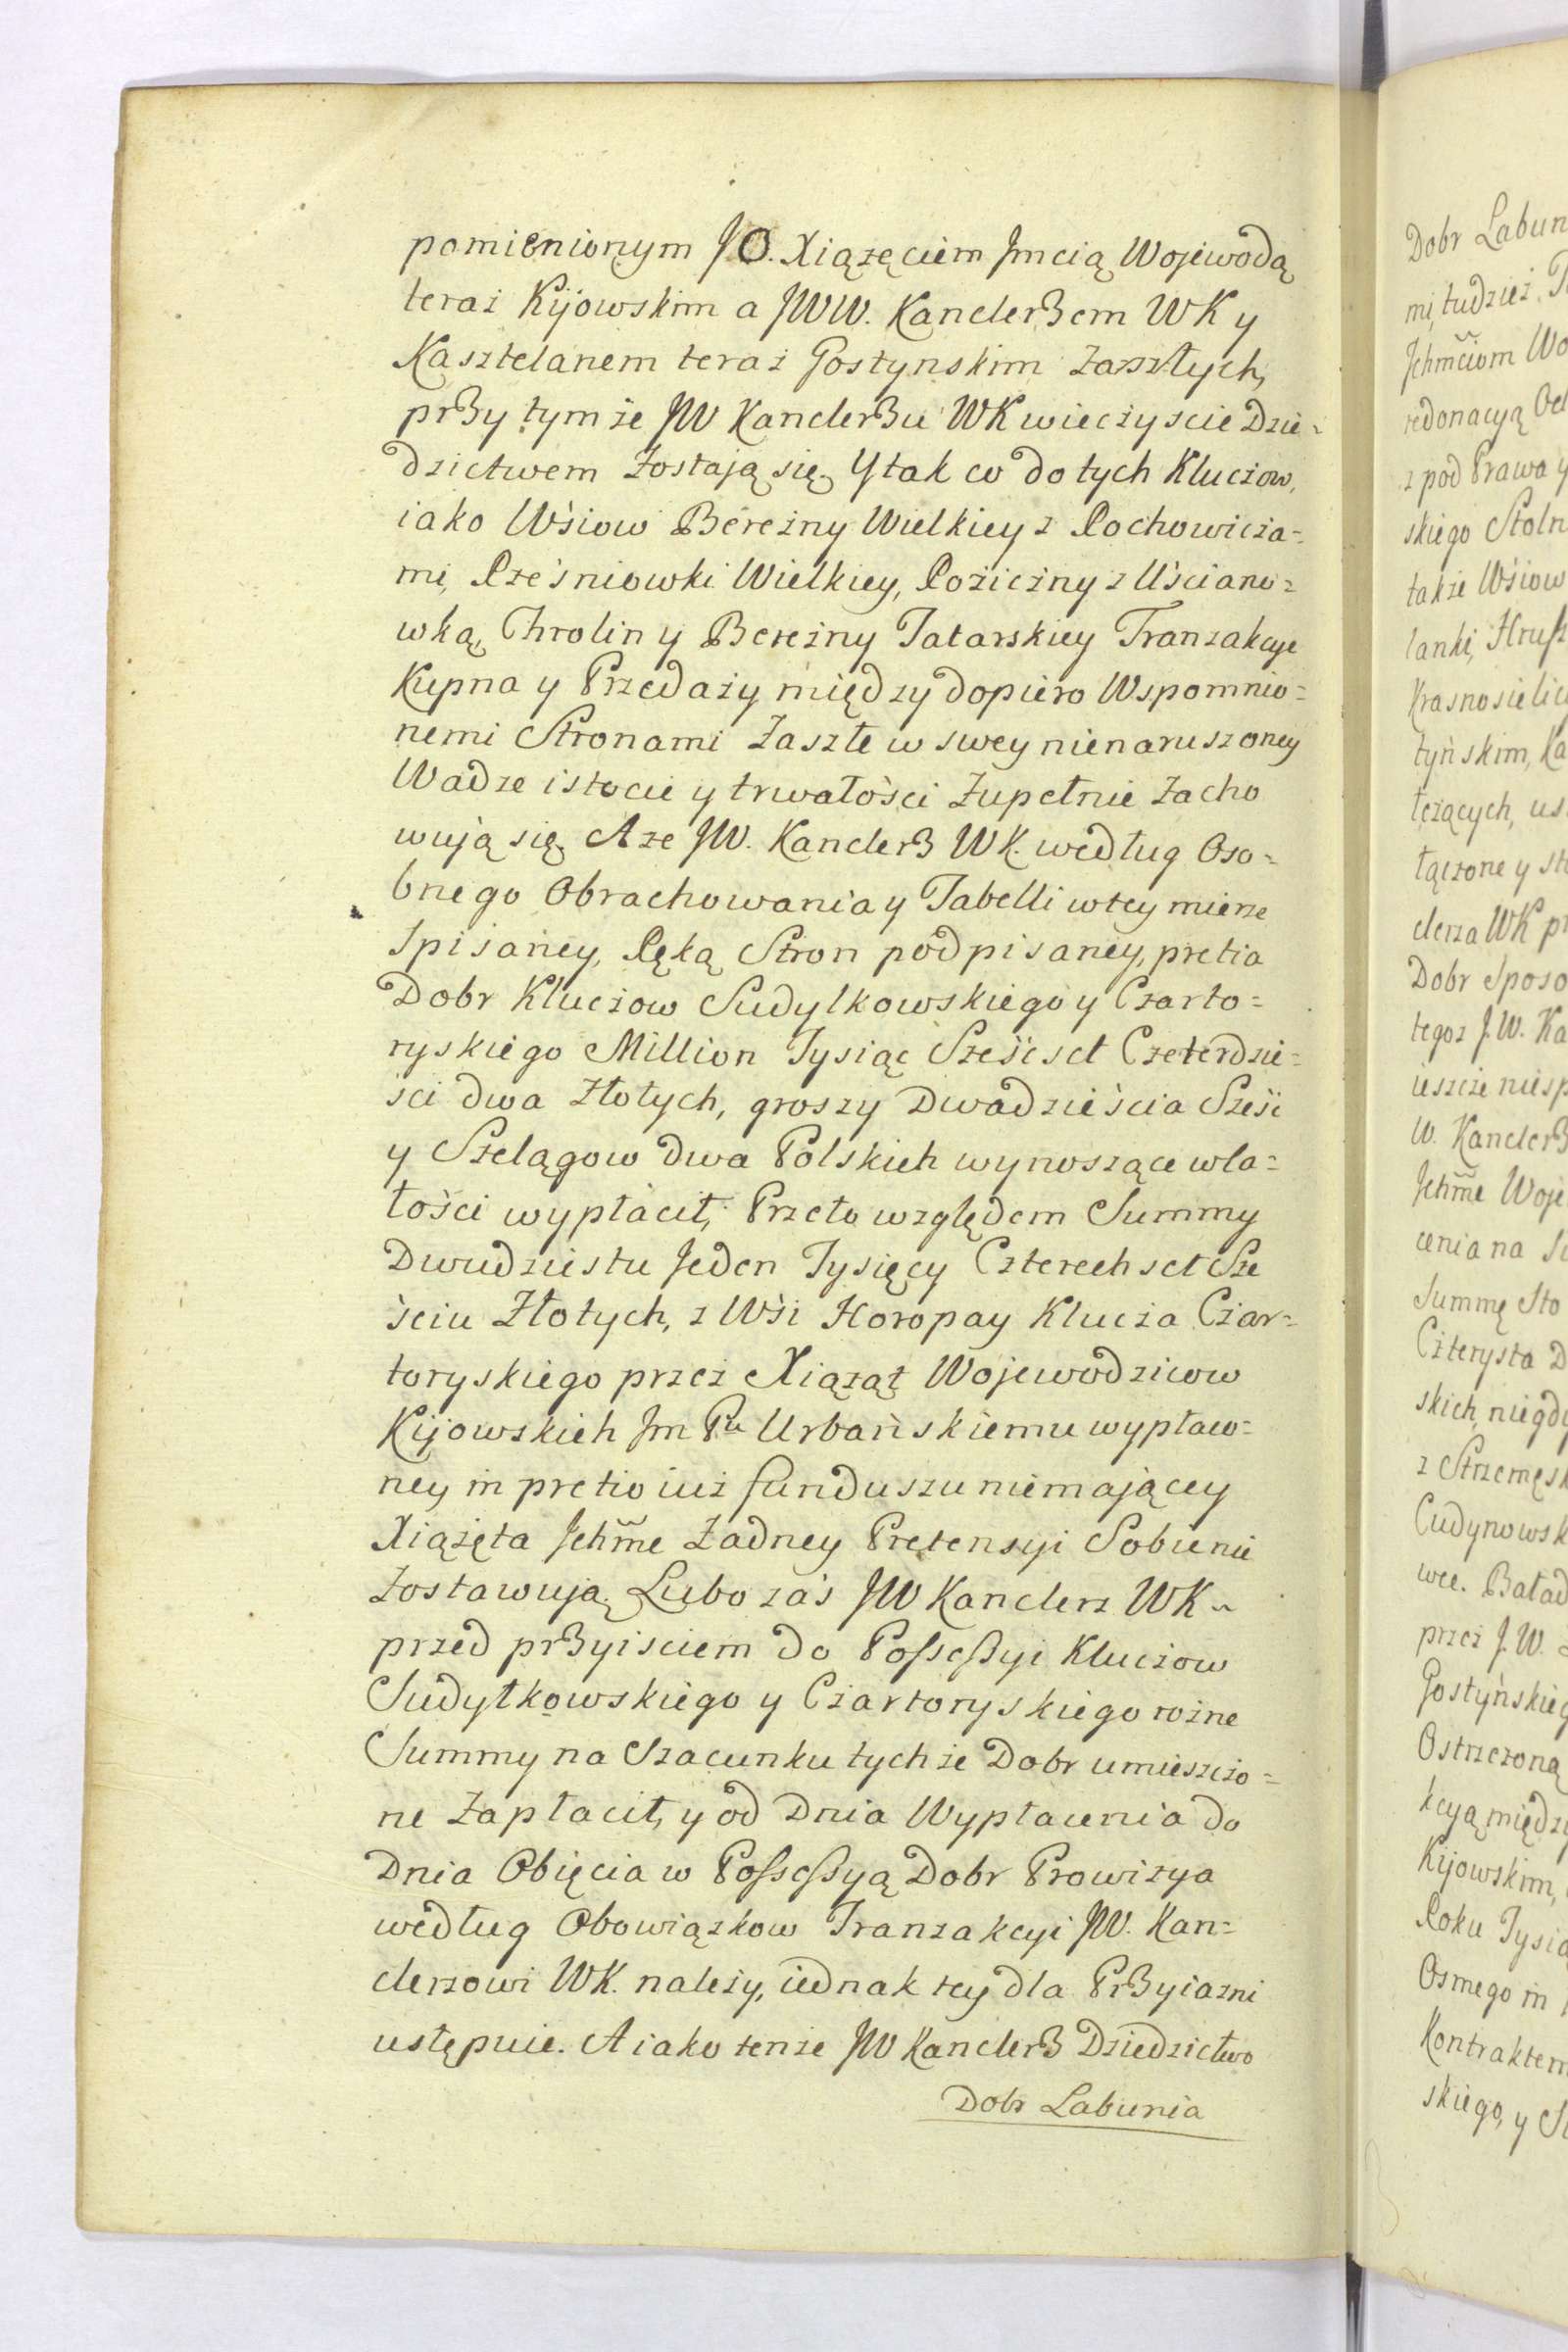 pomienionym JO. Xiążęciem Jmcią Wojewodą
teraz Kijowskim a JWW. Kanclerzem WK y
Kasztelanem teraz Gostynskim zaszłych,
przy tymże JW Kanclerzu WK wieczyscie Dzie=
dzictwem zostają się. Y tak co do tych Kluczow,
iako Wśiow Bereżny Wielkiey z Rochowicza=
mi, Rześniowki Wielkiey, Roziczny z Uścianu=
wką, Chrolin y Bereżny Tatarskiey Tranzakcye
Kupna y Przedaży między dopiero Wspomnio=
nemi Stronami zaszłe w swey nienaruszoney
Wadze istocie y trwałości zupełnie zacho
wują się. A ze JW. Kanclerz WK. według Oso=
bnego Obrachowania y Tabelli w tey mierze
spisaney, Ręką Stron podpisaney, pretia
Dobr Kluczow Sudylkowskiego y Czarto=
ryskiego Million Tysiąc Sześćset Czeterdzie=
ści dwa Złotych, groszy Dwadzieścia Sześć
y Szelągow dwa Polskich wynoszące w ca=
łości wypłacił, Przeto względem Summy
Dwudziestu Jeden Tysięcy Czterechset Sze
ściu Złotych, z Wśi Horopay Klucza Czar=
toryskiego przez Xiążąt Wojewodzicow
Kijowskich Jm Pu Urbańskiemu wypłaco=
ney in pretio iuż funduszu niemającey
Xiążęta Jchme Zadney Pretensyi Sobie nie
zostawują. Lubo zaś JW Kanclerz WK
przed przyisciem do Possessyi Kluczow
Sudyłkowskiego y Czartoryskiego rożne
Summy na Szacunku tychże Dobr umieszczo=
ne zapłacił, y od Dnia Wypłacenia do
Dnia Obięcia w Possessyą Dobr Prowizya
według Obowiązkow Tranzakcyi JW. Kan=
clerzowi WK. należy, iednak tey dla Przyiazni
ustępuie. A iako tenże JW Kanclerz Dziedzictwo
Dobr Labunia
Dobr Labun
mi, tudzież
Jchmciom Wo
redonacyą
z pod Prawa y
skiego Stoln
także Wśiow
lanki,
Krasnosielic
tyńskim, Ka
tczących, us
łączone y
clerza WK
Dobr Sposo
tegoż J.W. Ka
ieszcze niesp
W. Kanclerz
Jchme Woje
cenia na
Summę Sto
Czterysta D
skich, niegdy
z
Cudynowsk
wce. Baład
przez J.W.
Gostyńskieg
Ostrzezoną
kcyą między
Kijowskim,
Roku Tysią
Osmego in
Kontraktem
skiego, y